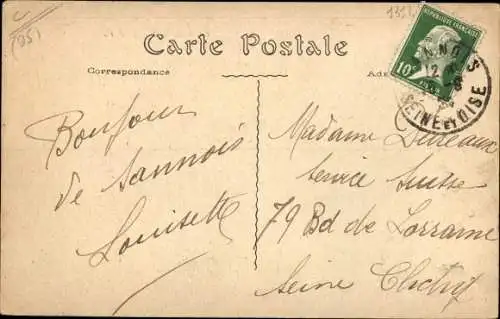 (95)
Carte Postale
Correspondance
RÉPUBLIQUE FRANÇAISE
10c
SEINE ET OISE
Bonjour
de Sannois
Louisette
Madame
Service Suisse
79 Bd de Lorraine
Seine Clichy